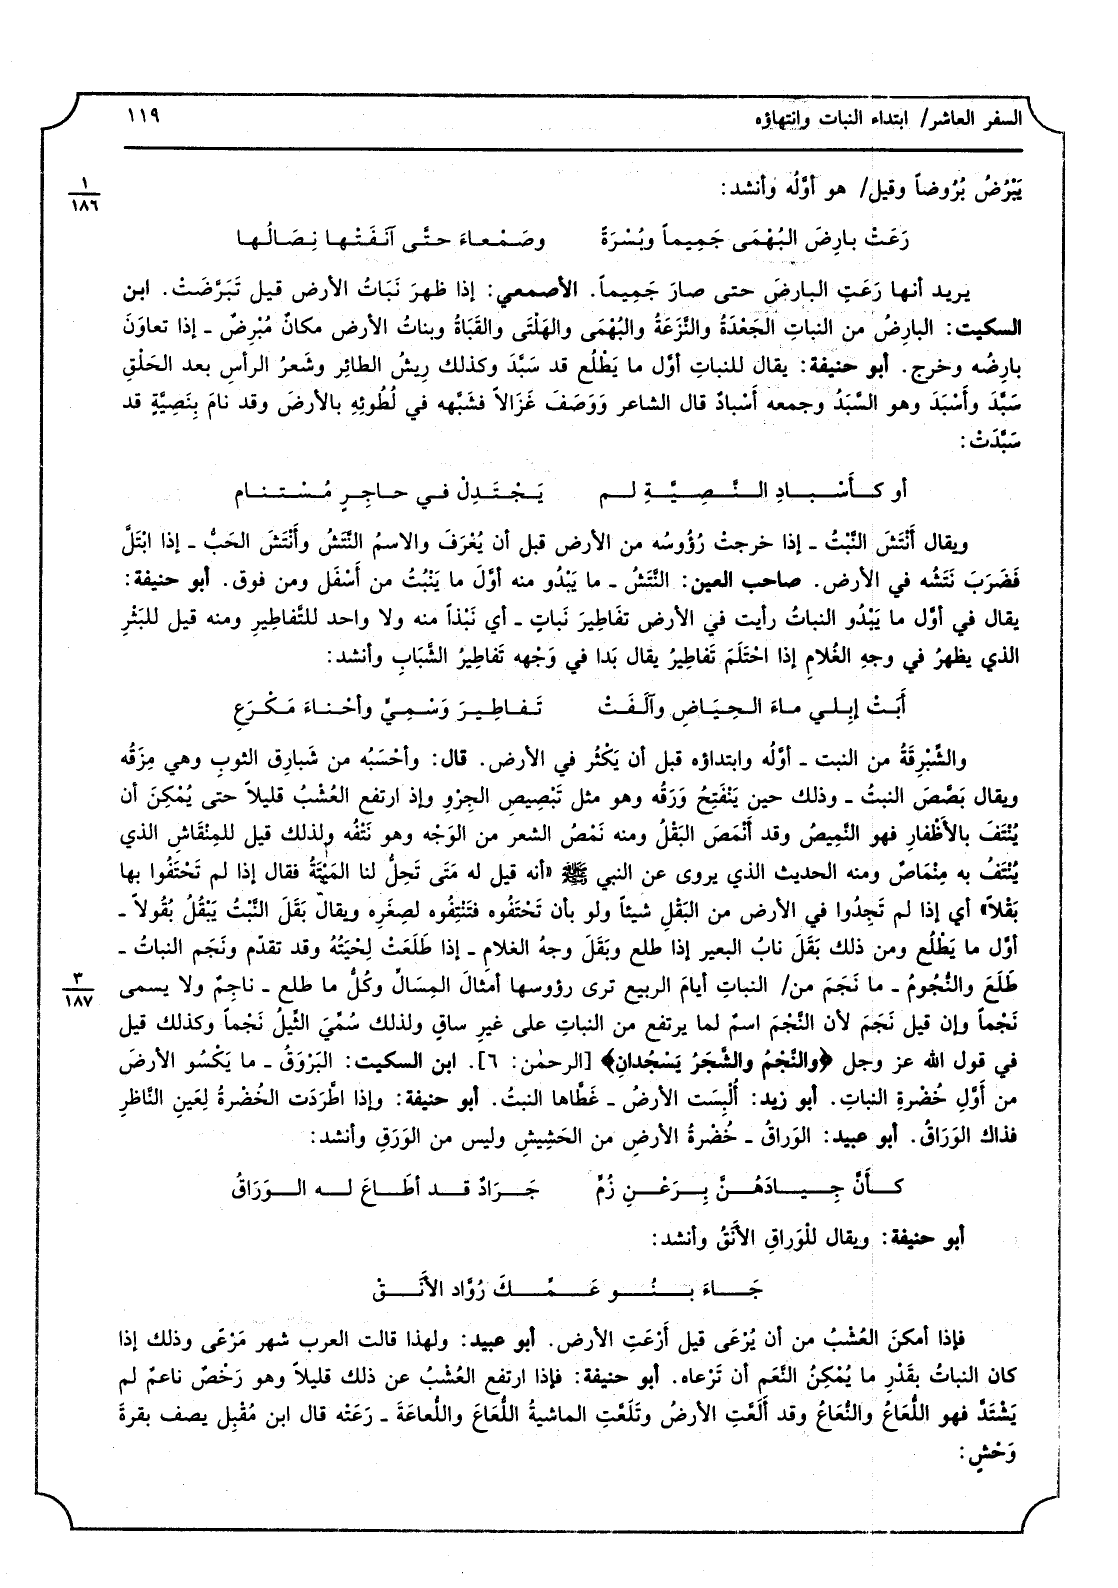 السفر العاشر/ ابتداء النبات وانتهاؤه ١١٩
يَبْرُضُ بُرُوضاً وقيل/ هو أوَّلُه وأنشد: ١/١٨٦
رَعَتْ بارِضَ البُهْمَى جَمِيماً وبُسْرَةً وصَمْعاءَ حتَّى آنَفَتْها نِصَالُها
يريد أنها رَعَتِ البارِضَ حتى صارَ جَمِيماً. الأصمعي: إذا ظهرَ نَبَاتُ الأرض قيل تَبَرَّضَتْ. ابن
السكيت: البارِضُ من النباتِ الجَعْدَةُ والنَّزَعَةُ والبُهْمَى والهَلْتَى والقَبَاةُ وبناتُ الأرض مكانٌ مُبْرِضٌ ـ إذا تعاوَنَ
بارِضُه وخرج. أبو حنيفة: يقال للنباتِ أوَّل ما يَطْلُع قد سَبَّدَ وكذلك رِيشُ الطائِر وشَعرُ الرأسِ بعد الحَلْقِ
سَبَّدَ وأَسْبَدَ وهو السَّبَدُ وجمعه أَسْبادٌ قال الشاعر وَوَصَفَ غَزَالاً فشَبَّهه في لُطُوئِهِ بالأرضَ وقد نامَ بِنَصِيَّةٍ قد
سَبَّدَتْ:
أو كـأَسْـبـادِ الـنَّـصِـيَّـةِ لـم يَـجْـتَـدِلْ فـي حـاجِـرٍ مُـسْـتـنـام
ويقال أَنْتَشَ النَّبْتُ ـ إذا خرجتْ رُؤُوسُه من الأرض قبل أن يُعْرَفَ والاسمُ النَّتَشُ وأَنْتَشَ الحَبُّ ـ إذا ابْتَلَّ
فَضَرَبَ نَتَشُه في الأرض. صاحب العين: النَّتَشُ ـ ما يَبْدُو منه أوَّلَ ما يَنْبُتُ من أَسْفَل ومن فوق. أبو حنيفة:
يقال في أوَّل ما يَبْدُو النباتُ رأيت في الأرض تفَاطِيرَ نَباتٍ ـ أي نَبْذاً منه ولا واحد للتَّفاطِيرِ ومنه قيل للبَثْرِ
الذي يظهرُ في وجهِ الغُلامِ إذا احْتَلَمَ تَفاطِيرُ يقال بَدا في وَجْهه تَفاطِيرُ الشَّبابِ وأنشد:
أَبَـتْ إبِـلـي مـاءَ الـحِـيَـاضِ وآلَـفَـتْ تَـفـاطِـيـرَ وَسْـمِـيٍّ وأحْـنـاءَ مَـكْـرَعِ
والشِّبْرِقَةُ من النبت ـ أوَّلُه وابتداؤه قبل أن يَكْثُر في الأرض. قال: وأحْسَبُه من شَبارِق الثوبِ وهي مِزَقُه
ويقال بَصَّصَ النبتُ ـ وذلك حين يَتْفَتِحُ وَرَقُه وهو مثل تَبْصِيصِ الجِرْوِ وإذ ارتفع العُشْبُ قليلاً حتى يُمْكِنَ أن
يُنْتَفَ بالأظْفارِ فهو النَّمِيصُ وقد أَنْمَصَ البَقْلُ ومنه نَمْصُ الشعر من الوَجْه وهو نَتْفُه ولذلك قيل للمِنْقاشِ الذي
يُنْتَفُ به مِنْماصٌ ومنه الحديث الذي يروى عن النبي ﷺ «أنه قيل له مَتَى تَحِلُّ لنا المَيْتَةُ فقال إذا لم تَحْتَفُوا بها
بَقْلاً» أي إذا لم تَجِدُوا في الأرض من البَقْلِ شيئاً ولو بأن تَحْتَفُوه فتَنْتِفُوه لصِغَرِه ويقال بَقَلَ النَّبْتُ يَبْقُلُ بُقُولاً ـ
أوّل ما يَطْلُع ومن ذلك بَقَلَ نابُ البعير إذا طلع وبَقَلَ وجهُ الغلامِ ـ إذا طَلَعَتْ لِحْيَتُهُ وقد تقدّم ونَجَم النباتُ ـ
طَلَعَ والنُّجُومُ ـ ما نَجَمَ من/ النباتِ أيامَ الربيع ترى رؤوسها أمثالَ المِسَالِّ وكُلُّ ما طلع ـ ناجِمٌ ولا يسمى ٣/١٨٧
نَجْماً وإن قيل نَجَمَ لأن النَّجْمَ اسمٌ لما يرتفع من النباتِ على غيرِ ساقٍ ولذلك سُمِّيَ الثَّيلُ نَجْماً وكذلك قيل
في قول الله عز وجل ﴿والنَّجْمُ والشَّجَرُ يَسْجُدانِ﴾ [الرحمٰن: ٦]. ابن السكيت: البَرْوَقُ ـ ما يَكْسُو الأرضَ
من أَوَّلِ خُضْرةِ النباتِ. أبو زيد: أُلْبِسَت الأرضُ ـ غَطَّاها النبتُ. أبو حنيفة: وإذا اطَّرَدَت الخُضْرةُ لِعَينِ النَّاظرِ
فذاك الوَرَاقُ. أبو عبيد: الوَراقُ ـ خُضْرةُ الأرضِ من الحَشِيشِ وليس من الوَرَقِ وأنشد:
كـأَنَّ جِـيـادَهُـنَّ بِـرَعْـنِ زُمٍّ جَـرَادٌ قـد أطَـاعَ لـه الـوَرَاقُ
أبو حنيفة: ويقال للْوَراقِ الأَنَقُ وأنشد:
جَـاءَ بـنُـو عَـمِّـكَ رُوَّاد الأنَـقْ
فإذا أمكنَ العُشْبُ من أن يُرْعَى قيل أَرْعَتِ الأرضُ. أبو عبيد: ولهذا قالت العرب شهر مَرْعَى وذلك إذا
كان النباتُ بقَدْرِ ما يُمْكِنُ النَّعَم أن تَرْعاه. أبو حنيفة: فإذا ارتفع العُشْبُ عن ذلك قليلاً وهو رَخْصٌ ناعمٌ لم
يَشْتَدَّ فهو اللُّعَاعُ والنُّعَاعُ وقد أَلَعَّتِ الأرضُ وتَلَعَّتِ الماشيةُ اللُّعَاعَ واللُّعاعَةَ ـ رَعَتْه قال ابن مُقْبِل يصف بقرةَ
وَحْشٍ: